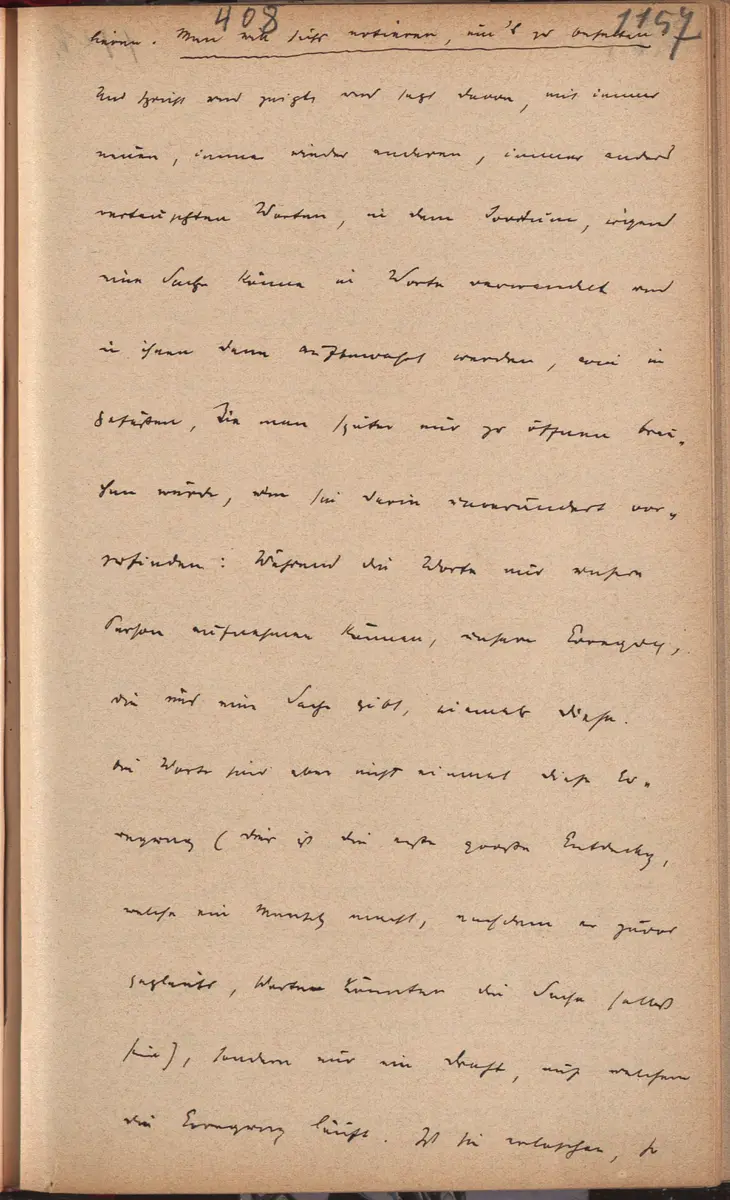 408 1157
lieren. Man will sichs notieren, um's zu behalten
Und schreibt und zeigts und sagt davon, mit immer
neuen, immer wieder anderen, immer anders
verknüpften Worten, in dem Irrtum, irgend
eine Sache könne in Worte verwandelt und
in ihnen dann aufbewahrt werden, wie in
Gefäßen, die man später nur zu öffnen brau-
chen würde, um sie darin unverändert vor-
zufinden: Während die Worte nur unsere
Person aufnehmen können, unsere Erregung,
die uns eine Sache gibt, niemals diese.
Die Worte sind aber nicht einmal diese Er-
regung (dies ist die erste große Entdeckg,
welche ein Mensch macht, nachdem er zuvor
geglaubt, Worte könnten die Sache selbst
sein), sondern nur ein Draht, auf welchem
die Erregung läuft. Ist sie erloschen, so